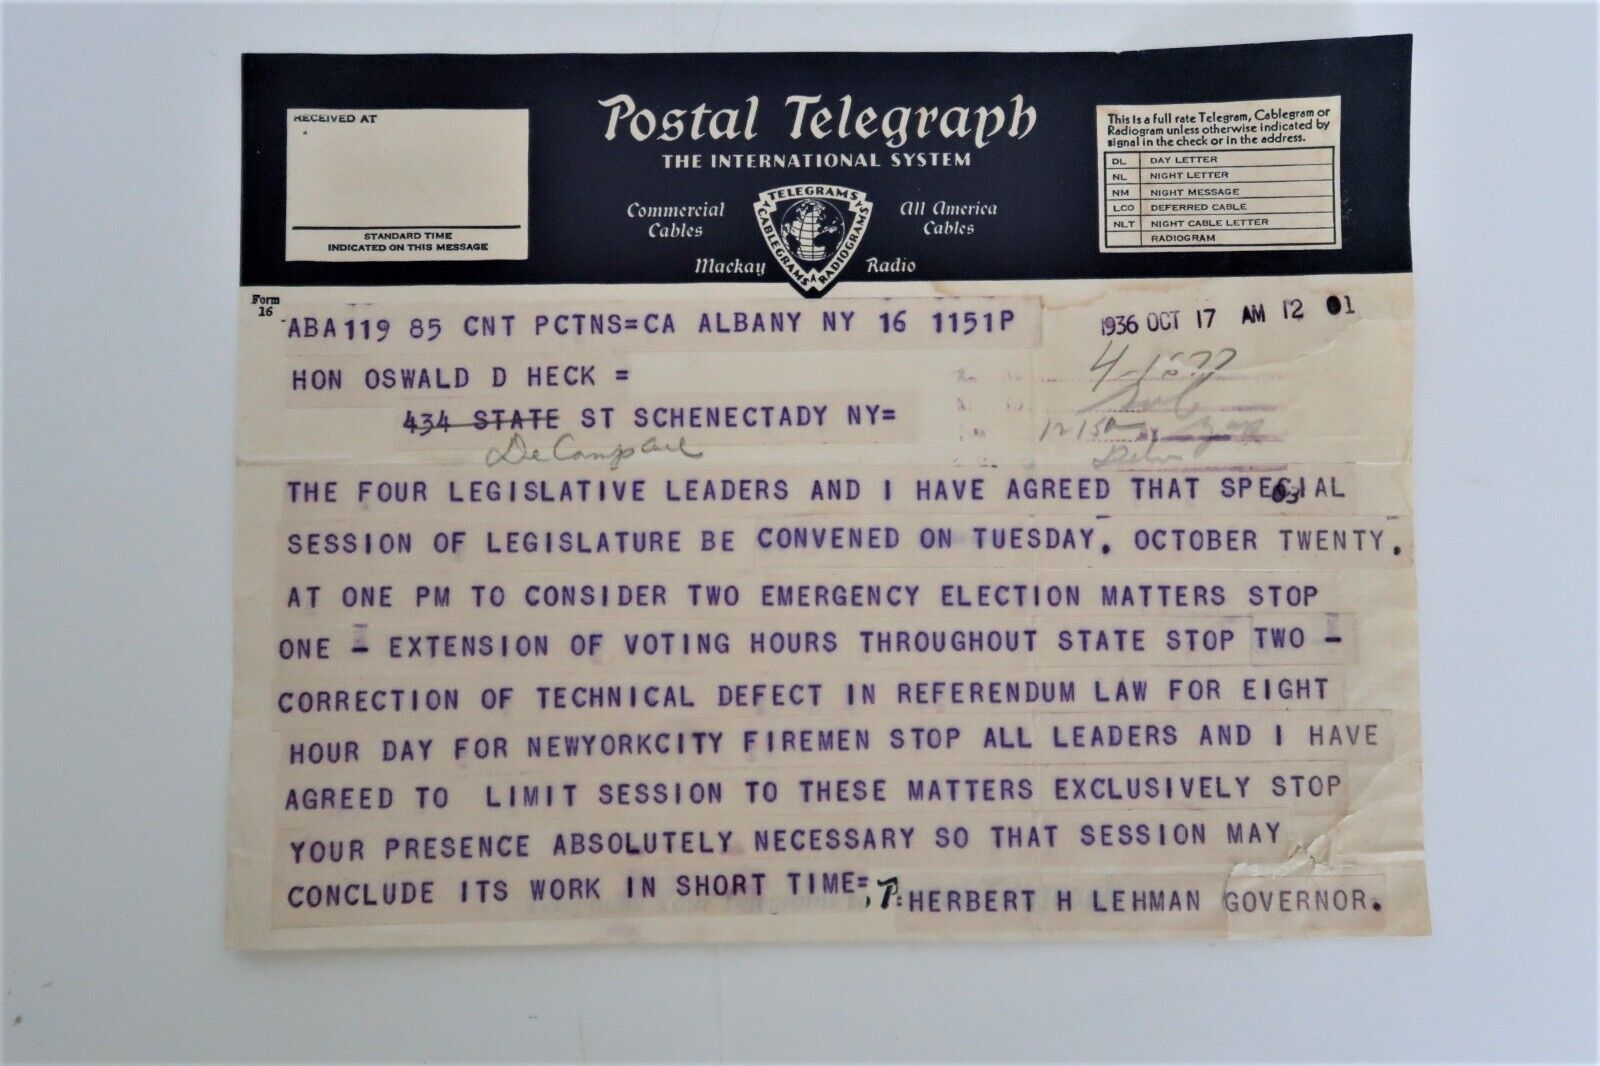 RECEIVED AT
STANDARD TIME
INDICATED ON THIS MESSAGE
Postal Telegraph
THE INTERNATIONAL SYSTEM
Commercial
Cables
All America
Cables
TELEGRAMS
CABLEGRAMS
RADIOGRAMS
Mackay Radio
This is a full rate Telegram, Cablegram or
Radiogram unless otherwise indicated by
signal in the check or in the address.
DL DAY LETTER
NL NIGHT LETTER
NM NIGHT MESSAGE
LCO DEFERRED CABLE
NLT NIGHT CABLE LETTER
RADIOGRAM
Form
16
ABA119 85 CNT PCTNS=CA ALBANY NY 16 1151P
1936 OCT 17 AM 12 01
HON OSWALD D HECK =
434 STATE ST SCHENECTADY NY=
THE FOUR LEGISLATIVE LEADERS AND I HAVE AGREED THAT SPECIAL
SESSION OF LEGISLATURE BE CONVENED ON TUESDAY. OCTOBER TWENTY.
AT ONE PM TO CONSIDER TWO EMERGENCY ELECTION MATTERS STOP
ONE - EXTENSION OF VOTING HOURS THROUGHOUT STATE STOP TWO -
CORRECTION OF TECHNICAL DEFECT IN REFERENDUM LAW FOR EIGHT
HOUR DAY FOR NEWYORKCITY FIREMEN STOP ALL LEADERS AND I HAVE
AGREED TO LIMIT SESSION TO THESE MATTERS EXCLUSIVELY STOP
YOUR PRESENCE ABSOLUTELY NECESSARY SO THAT SESSION MAY
CONCLUDE ITS WORK IN SHORT TIME=
HERBERT H LEHMAN GOVERNOR.